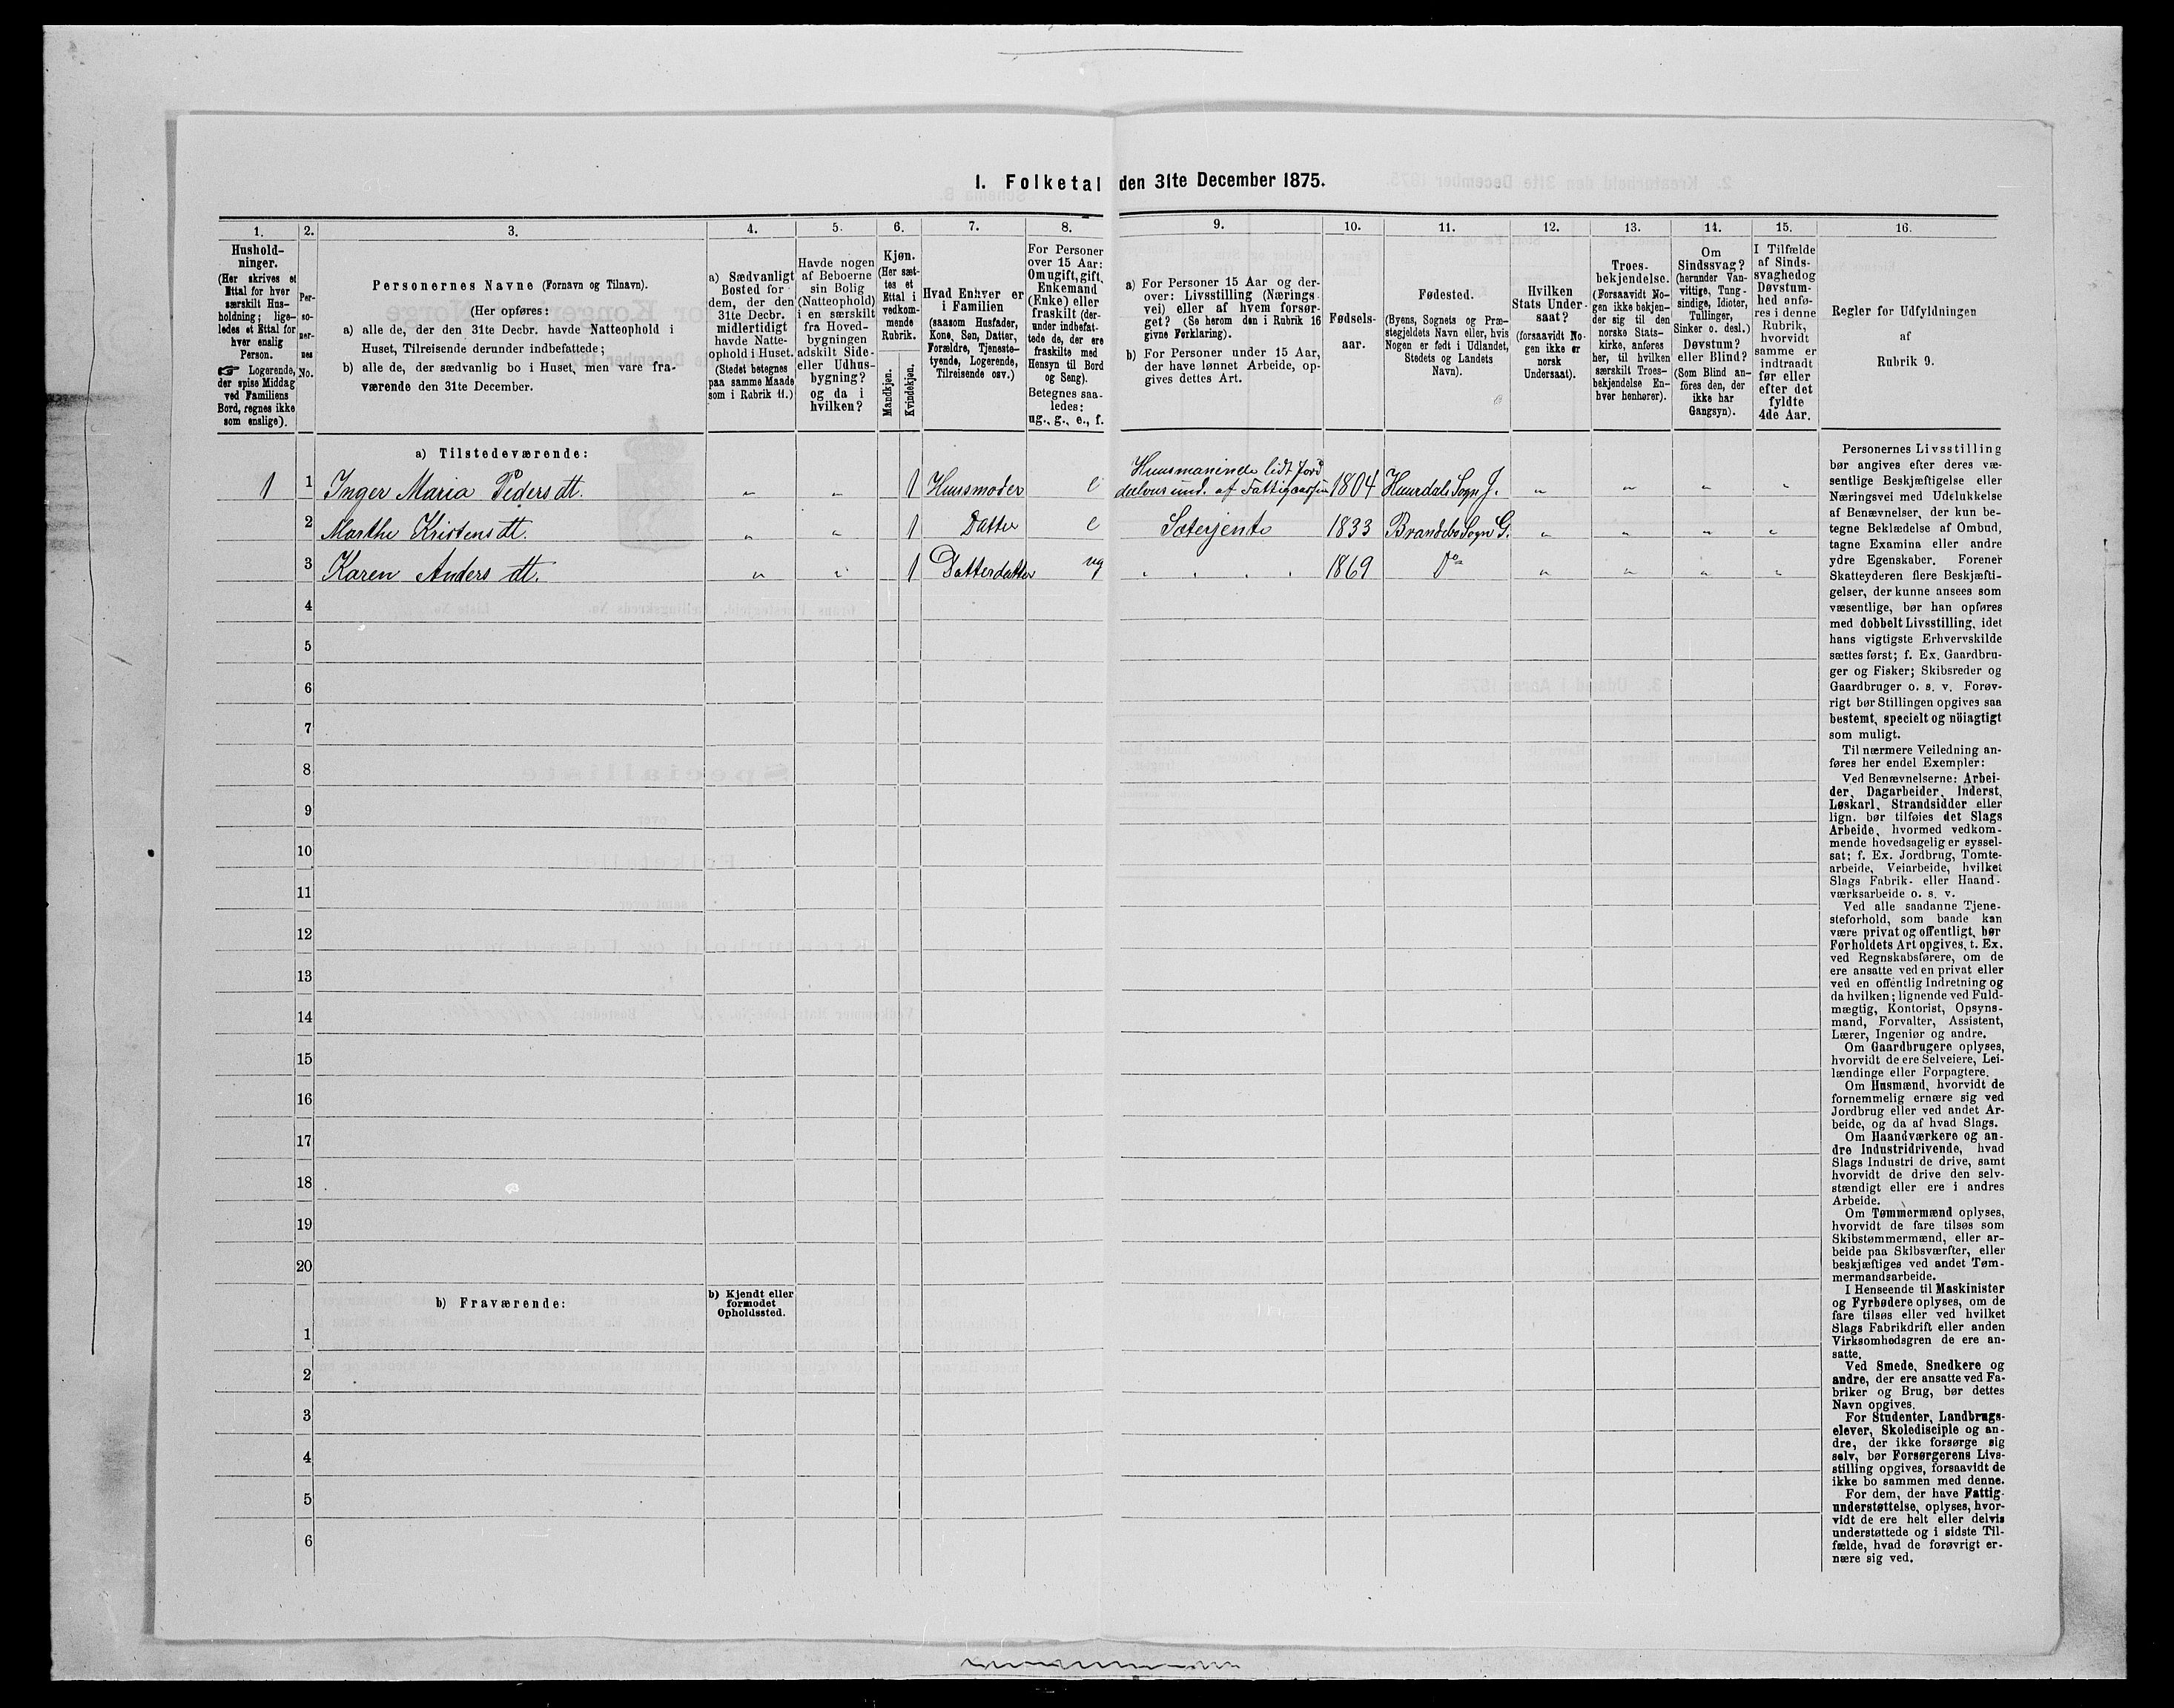 I. Folketal den 31te December 1875.
1.
Hushold-
ninger.
(Her skrives et
Ettal for hver
særskilt Hus-
holdning; lige-
ledes et Ettal for
hver enslig
Person.
☞ Logerende,
der spise Middag
ved Familiens
Bord, regnes ikke
som enslige).
2.
Per-
so-
ner-
nes
No.
3.
Personernes Navne (Fornavn og Tilnavn).
(Her opføres:
a) alle de, der den 31te Decbr. havde Natteophold i
Huset, Tilreisende derunder indbefattede;
b) alle de, der sædvanlig bo i Huset, men vare fra-
værende den 31te December.
4.
a) Sædvanligt
Bosted for
dem, der den
31te Decbr.
midlertidigt
havde Natte-
ophold i Huset.
(Stedet betegnes
paa samme Maade
som i Rubrik 11.)
5.
Havde nogen
af Beboerne
sin Bolig
(Natteophold)
i en særskilt
fra Hoved-
bygningen
adskilt Side-
eller Udhus-
bygning?
og da i
hvilken?
6.
Kjøn.
(Her sæt-
tes et
Ettal i
vedkom-
mende
Rubrik.
Mandkjøn.
Kvindekjøn.
7.
Hvad Enhver er
i Familien
(saasom Husfader,
Kone, Søn, Datter,
Forældre, Tjeneste-
tyende, Logerende,
Tilreisende osv.)
8.
For Personer
over 15 Aar:
Om ugift, gift,
Enkemand
(Enke) eller
fraskilt (der-
under indbefat-
tede de, der ere
fraskilte med
Hensyn til Bord
og Seng).
Betegnes saa-
ledes:
ug., g., e., f.
9.
a) For Personer 15 Aar og der-
over: Livsstilling (Nærings-
vei) eller af hvem forsør-
get? (Se herom den i Rubrik 16
givne Forklaring).
b) For Personer under 15 Aar,
der have lønnet Arbeide, op-
gives dettes Art.
10.
Fødsels-
aar.
11.
Fødested.
(Byens, Sognets og Præ-
stegjeldets Navn eller, hvis
Nogen er født i Udlandet,
Stedets og Landets
Navn).
12.
Hvilken
Stats Under-
saat?
(forsaavidt No-
gen ikke er
norsk
Undersaat).
13.
Troes-
bekjendelse.
(Forsaavidt No-
gen ikke bekjen-
der sig til den
norske Stats-
kirke, anføres
her, til hvilken
særskilt Troes-
bekjendelse En-
hver henhører).
14.
Om
Sindssvag?
(herunder Van-
vittige, Tung-
sindige, Idioter,
Tullinger,
Sinker o. desl.)
Døvstum?
eller Blind?
(Som Blind an-
føres den, der
ikke har
Gangsyn).
15.
I Tilfælde
af Sinds-
svaghed og
Døvstum-
hed anfø-
res i denne
Rubrik,
hvorvidt
samme er
indtraadt
før eller
efter det
fyldte
4de Aar.
16.
Regler for Udfyldningen
af
Rubrik 9.
a) Tilstedeværende:
1 1 Inger Maria Peders dt. " " 1 Huusmoder e Huusmaninde lidt Jord
und. af 1804 Huurdals Sogn J. " " " "
2 Marthe Kristens dt. " " 1 Datter e Sæterjente 1833 Brandebo Sogn G. " " " "
3 Karen Anders dt. " " 1 Datterdatter ug " " " " 1869 Do " " " "
4
5
6
7
8
9
10
11
12
13
14
15
16
17
18
19
20
b) Fraværende:
b) Kjendt eller
formodet
Opholdssted.
1
2
3
4
5
6
Personernes Livsstilling
bør angives efter deres væ-
sentlige Beskjæftigelse eller
Næringsvei med Udelukkelse
af Benævnelser, der kun be-
tegne Beklædelse af Ombud,
tagne Examina eller andre
ydre Egenskaber. Forener
Skatteyderen flere Beskjæfti-
gelser, der kunne ansees som
væsentlige, bør han opføres
med dobbelt Livsstilling, idet
hans vigtigste Erhvervskilde
sættes først; f. Ex. Gaardbru-
ger og Fisker; Skibsreder og
Gaardbruger o. s. v. Forøv-
rigt bør Stillingen opgives saa
bestemt, specielt og nöiagtigt
som muligt.
Til nærmere Veiledning an-
føres her endel Exempler:
Ved Benævnelserne: Arbei-
der, Dagarbeider, Inderst,
Løskarl, Strandsidder eller
lign. bør tilføies det Slags
Arbeide, hvormed vedkom-
mende hovedsagelig er syssel-
sat; f. Ex. Jordbrug, Tomte-
arbeide, Veiarbeide, hvilket
Slags Fabrik- eller Haand-
værksarbeide o. s. v.
Ved alle saadanne Tjene-
steforhold, som baade kan
være privat og offentligt, bør
Forholdets Art opgives, t. Ex.
ved Regnskabsførere, om de
ere ansatte ved en privat eller
ved en offentlig Indretning og
da hvilken; lignende ved Fuld-
mægtig, Kontorist, Opsyns-
mand, Forvalter, Assistent,
Lærer, Ingeniør og andre.
Om Gaardbrugere oplyses,
hvorvidt de ere Selveiere, Lei-
lændinge eller Forpagtere.
Om Husmænd, hvorvidt de
fornemmelig ernære sig ved
Jordbrug eller ved andet Ar-
beide, og da af hvad Slags.
Om Haandværkere og an-
dre Industridrivende, hvad
Slags Industri de drive, samt
hvorvidt de drive den selv-
stændigt eller ere i andres
Arbeide.
Om Tømmermænd oplyses,
hvorvidt de fare tilsøs som
Skibstømmermænd, eller ar-
beide paa Skibsværfter, eller
beskjæftiges ved andet Tøm-
mermandsarbeide.
I Henseende til Maskinister
og Fyrbødere oplyses, om de
fare tilsøs eller ved hvilket
Slags Fabrikdrift eller anden
Virksomhedsgren de ere an-
satte.
Ved Smede, Snedkere og
andre, der ere ansatte ved Fa-
briker og Brug, bør dettes
Navn opgives.
For Studenter, Landbrugs-
elever, Skoledisciple og an-
dre, der ikke forsørge sig
selv, bør Forsørgerens Livs-
stilling opgives, forsaavidt de
ikke bo sammen med denne.
For dem, der have Fattig-
understøttelse, oplyses, hvor-
vidt de ere helt eller delvis
understøttede og i sidste Til-
fælde, hvad de forøvrigt er-
nære sig ved.